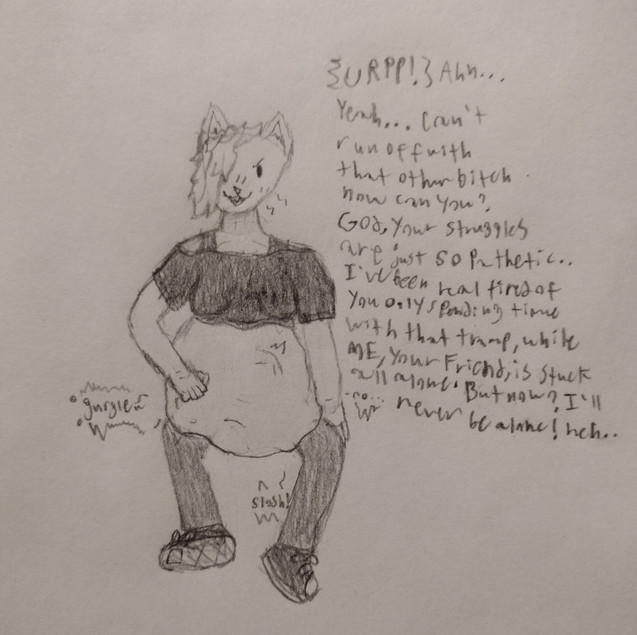 {URPP!} Ahh...
Yeah... Can't
run off with
that other bitch
now can you?
God, your struggles
are just so pathetic..
I've been real tired of
you only spending time
with that tramp, while
ME, your friend, is stuck
all alone. But now? I'll
never
be alone! heh..
gurgle~
slosh!